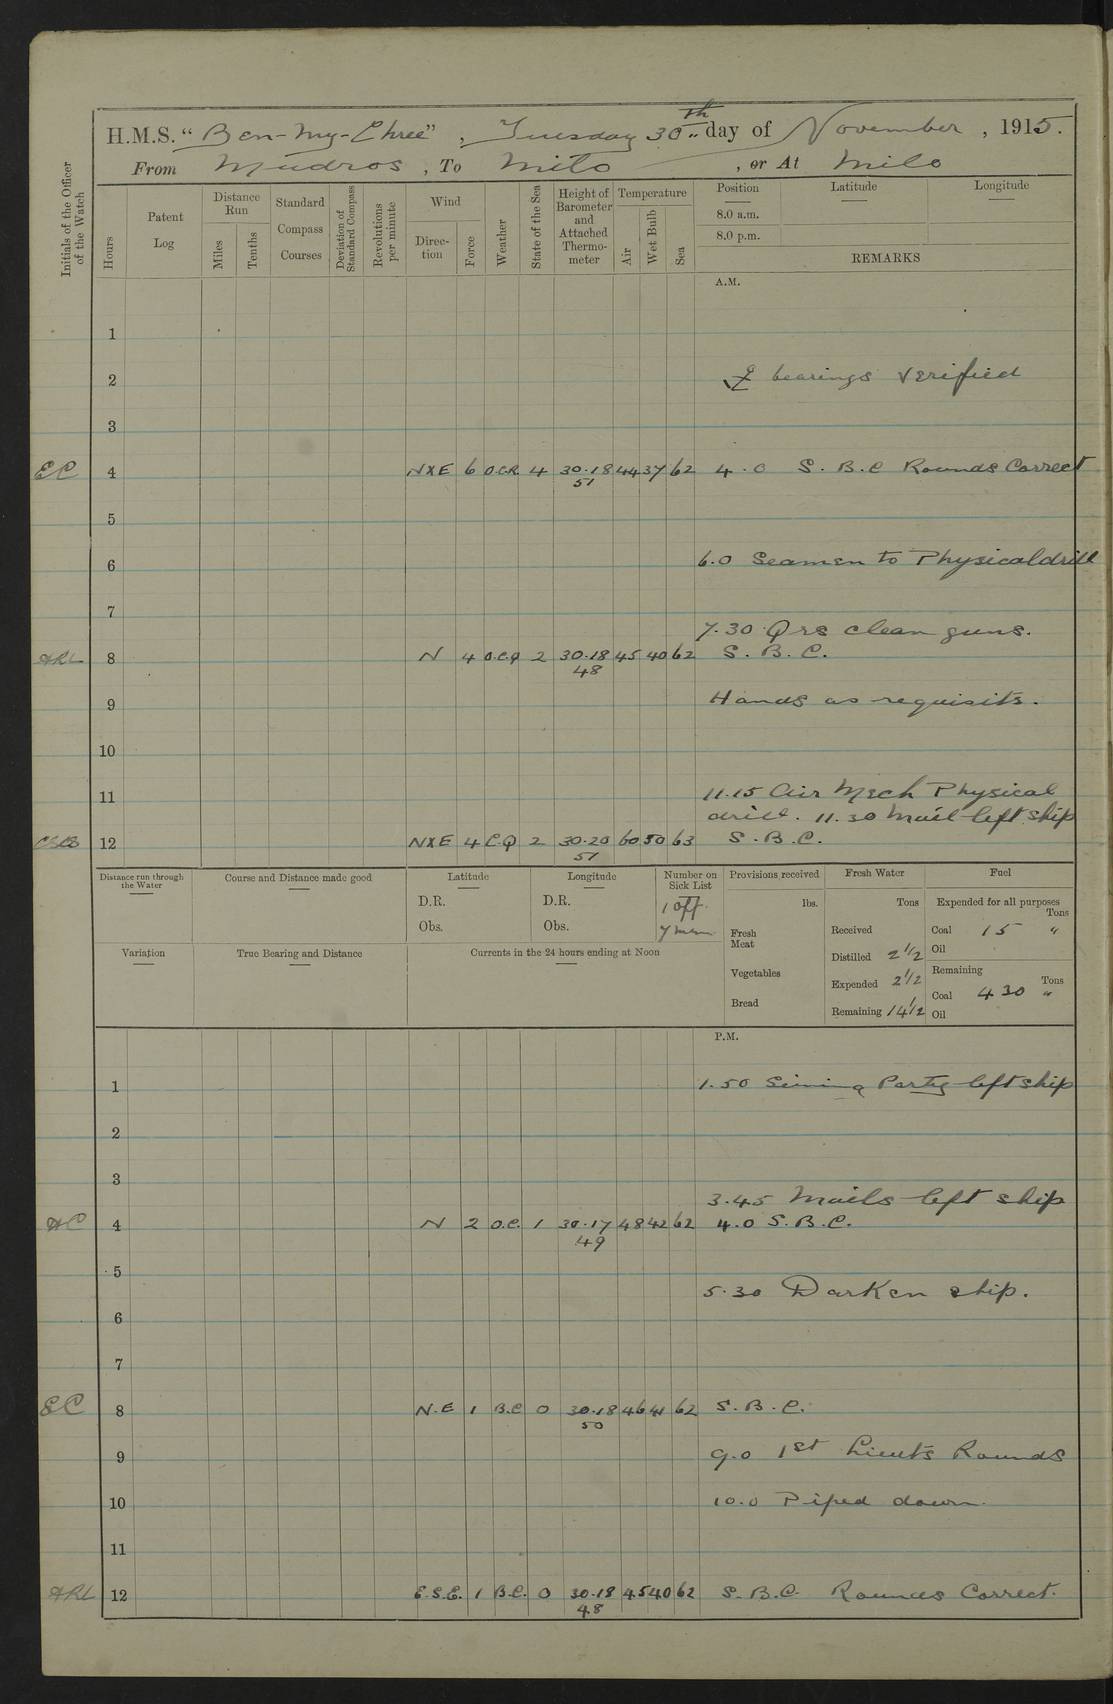 H.M.S. "Ben-My-Chree", Tuesday 30th day of November, 1915.
From Mudros, To Milo, or At Milo
Initials of the Officer of the Watch
Hours
Patent Log
Distance Run
Miles
Tenths
Standard Compass Courses
Deviation of Standard Compass
Revolutions per minute
Wind
Direc-tion
Force
Weather
State of the Sea
Height of Barometer and Attached Thermo-meter
Temperature
Air
Wet Bulb
Sea
Position
Latitude
Longitude
8.0 a.m.
8.0 p.m.
REMARKS
A.M.
1
2 bearings verified
3
EC 4 NXE 6 O.C.R. 4 30.18 44 37 62 4.0 S.B.C Rounds Correct
51
5
6 6.0 Seamen to Physical drill
7
7.30 Qrs clean guns.
ARL 8 N 4 O.C.Q 2 30.18 45 40 62 S.B.C.
48
9 Hands as requisits.
10
11 11.15 Air Mech Physical
drill. 11.30 Mail left ship
12 NXE 4 C.Q 2 30.20 60 50 63 S.B.C.
51
Distance run through the Water
Course and Distance made good
Latitude
D.R.
Obs.
Longitude
D.R.
Obs.
Number on Sick List
1 Off.
7 men
Provisions received
lbs.
Fresh Meat
Vegetables
Bread
Fresh Water
Tons
Received
Distilled 2 1/2
Expended 2 1/2
Remaining 14 1/2
Fuel
Expended for all purposes
Tons
Coal 15 "
Oil
Remaining
Tons
Coal 430 "
Oil
Variation
True Bearing and Distance
Currents in the 24 hours ending at Noon
P.M.
1 1.50 Party left ship
2
3
3.45 Mails left ship
AC 4 N 2 O.C. 1 30.17 48 42 62 4.0 S.B.C.
49
5
5.30 Darken ship.
6
7
EC 8 N.E 1 B.C 0 30.18 46 41 62 S.B.C.
50
9 9.0 1st Lieuts Rounds
10 10.0 Piped down.
11
ARL 12 E.S.E. 1 B.C. 0 30.18 45 40 62 S.B.C. Rounds Correct.
48